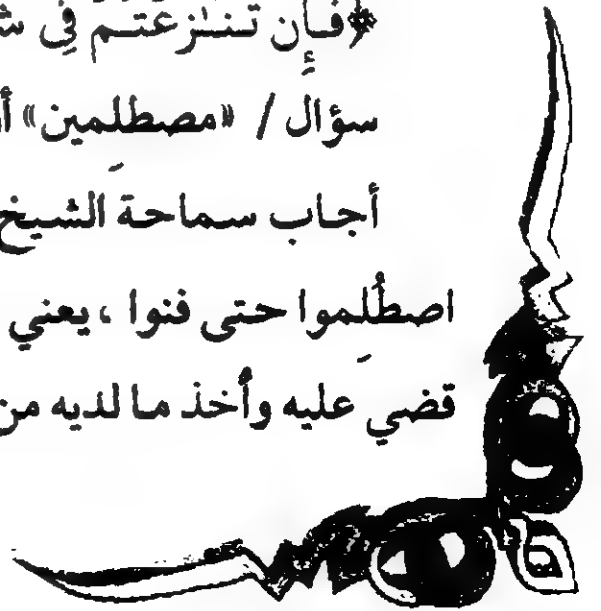 ﴿فَإِن تَنَٰزَعْتُمْ فِى
سؤال / «مصطلِمين»
أجاب سماحة الشيخ
اصطُلِموا حتى فنوا ، يعني
قضي عليه وأُخذ ما لديه من